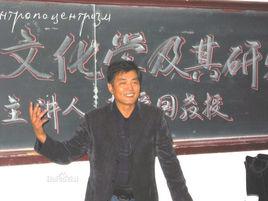 нтропоцентризм
文化学及其研
主讲人 教授